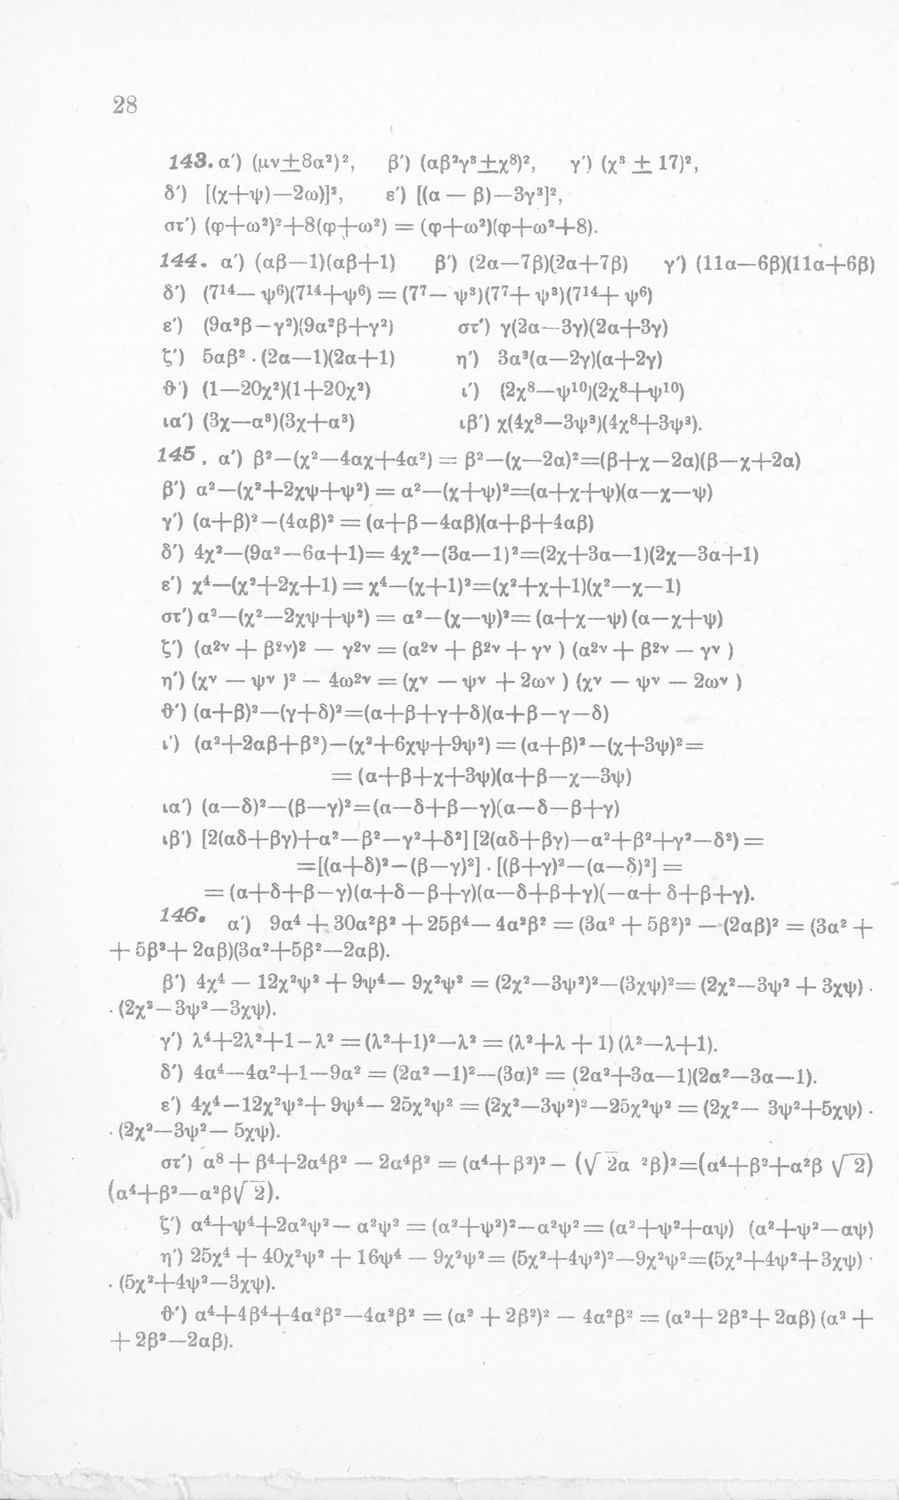 28
143. α΄) (μν±8α²)², β΄) (αβ²γ³±χ⁸)², γ΄) (χ³ ± 17)²,
δ΄) [(χ+ψ)—2ω)]², ε΄) [(α — β)—3γ³]²,
στ΄) (φ+ω²)²+8(φ+ω²) = (φ+ω²)(φ+ω²+8).
144. α΄) (αβ—1)(αβ+1) β΄) (2α—7β)(2α+7β) γ΄) (11α—6β)(11α+6β)
δ΄) (7¹⁴— ψ⁶)(7¹⁴+ψ⁶) = (7⁷— ψ³)(7⁷+ ψ³)(7¹⁴+ ψ⁶)
ε΄) (9α²β—γ²)(9α²β+γ²) στ΄) γ(2α—3γ)(2α+3γ)
ζ΄) 5αβ² . (2α—1)(2α+1) η΄) 3α³(α—2γ)(α+2γ)
θ΄) (1—20χ²)(1+20χ²) ι΄) (2χ⁸—ψ¹⁰)(2χ⁸+ψ¹⁰)
ια΄) (3χ—α³)(3χ+α³) ιβ΄) χ(4χ⁸—3ψ³)(4χ⁸+3ψ³).
145. α΄) β²—(χ²—4αχ+4α²) = β²—(χ—2α)²=(β+χ—2α)(β—χ+2α)
β΄) α²—(χ²+2χψ+ψ²) = α²—(χ+ψ)²=(α+χ+ψ)(α—χ—ψ)
γ΄) (α+β)²—(4αβ)² = (α+β—4αβ)(α+β+4αβ)
δ΄) 4χ²—(9α²—6α+1)= 4χ²—(3α—1)²=(2χ+3α—1)(2χ—3α+1)
ε΄) χ⁴—(χ²+2χ+1) = χ⁴—(χ+1)²=(χ²+χ+1)(χ²—χ—1)
στ΄) α²—(χ²—2χψ+ψ²) = α²—(χ—ψ)²= (α+χ—ψ) (α—χ+ψ)
ζ΄) (α²ᵛ + β²ᵛ)² — γ²ᵛ = (α²ᵛ + β²ᵛ + γᵛ ) (α²ᵛ + β²ᵛ — γᵛ )
η΄) (χᵛ — ψᵛ )² — 4ω²ᵛ = (χᵛ — ψᵛ + 2ωᵛ ) (χᵛ — ψᵛ — 2ωᵛ )
θ΄) (α+β)²—(γ+δ)²=(α+β+γ+δ)(α+β—γ—δ)
ι΄) (α²+2αβ+β²)—(χ²+6χψ+9ψ²) = (α+β)²—(χ+3ψ)²=
= (α+β+χ+3ψ)(α+β—χ—3ψ)
ια΄) (α—δ)²—(β—γ)²=(α—δ+β—γ)(α—δ—β+γ)
ιβ΄) [2(αδ+βγ)+α²—β²—γ²+δ²] [2(αδ+βγ)—α²+β²+γ²—δ²) =
=[(α+δ)²—(β—γ)²] . [(β+γ)²—(α—δ)²] =
= (α+δ+β—γ)(α+δ—β+γ)(α—δ+β+γ)(—α+ δ+β+γ).
146. α΄) 9α⁴ + 30α²β² + 25β⁴— 4α²β² = (3α² + 5β²)² — (2αβ)² = (3α² +
+ 5β²+ 2αβ)(3α²+5β²—2αβ).
β΄) 4χ⁴ — 12χ²ψ² + 9ψ⁴— 9χ²ψ² = (2χ²—3ψ²)²—(3χψ)²= (2χ²—3ψ² + 3χψ) .
. (2χ²—3ψ²—3χψ).
γ΄) λ⁴+2λ²+1—λ² = (λ²+1)²—λ² = (λ²+λ + 1) (λ²—λ+1).
δ΄) 4α⁴—4α²+1—9α² = (2α²—1)²—(3α)² = (2α²+3α—1)(2α²—3α—1).
ε΄) 4χ⁴—12χ²ψ²+ 9ψ⁴— 25χ²ψ² = (2χ²—3ψ²)²—25χ²ψ² = (2χ²— 3ψ²+5χψ) .
. (2χ²—3ψ²— 5χψ).
στ΄) α⁸ + β⁴+2α⁴β² — 2α⁴β² = (α⁴+ β²)² — (√2α ²β)²=(α⁴+β²+α²β √2)
(α⁴+β²—α²β√2).
ζ΄) α⁴+ψ⁴+2α²ψ²— α²ψ² = (α²+ψ²)²—α²ψ² = (α²+ψ²+αψ) (α²+ψ²—αψ)
η΄) 25χ⁴ + 40χ²ψ² + 16ψ⁴ — 9χ²ψ²= (5χ²+4ψ²)²—9χ²ψ²=(5χ²+4ψ²+3χψ) .
. (5χ²+4ψ²—3χψ).
θ΄) α⁴+4β⁴+4α²β²—4α²β² = (α² + 2β²)² — 4α²β² = (α²+ 2β²+ 2αβ) (α² +
+ 2β²—2αβ).